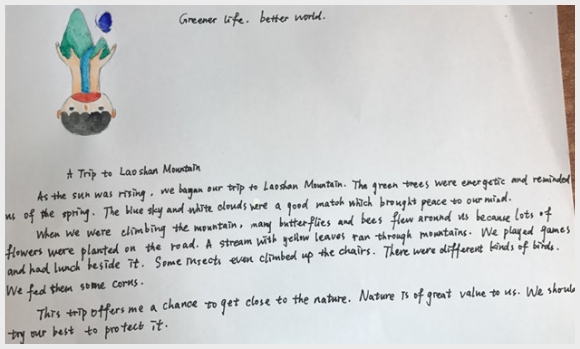 Greener life. better world.
A Trip to Laoshan Mountain
As the sun was rising, we began our trip to Laoshan Mountain. The green trees were energetic and reminded
us of the spring. The blue sky and white clouds were a good match which brought peace to our mind.
When we were climbing the mountain, many butterflies and bees flew around us because lots of
flowers were planted on the road. A stream with yellow leaves ran through mountains. We played games
and had lunch beside it. Some insects even climbed up the chairs. There were different kinds of birds.
We fed them some corns.
This trip offers me a chance to get close to the nature. Nature is of great value to us. We should
try our best to protect it.